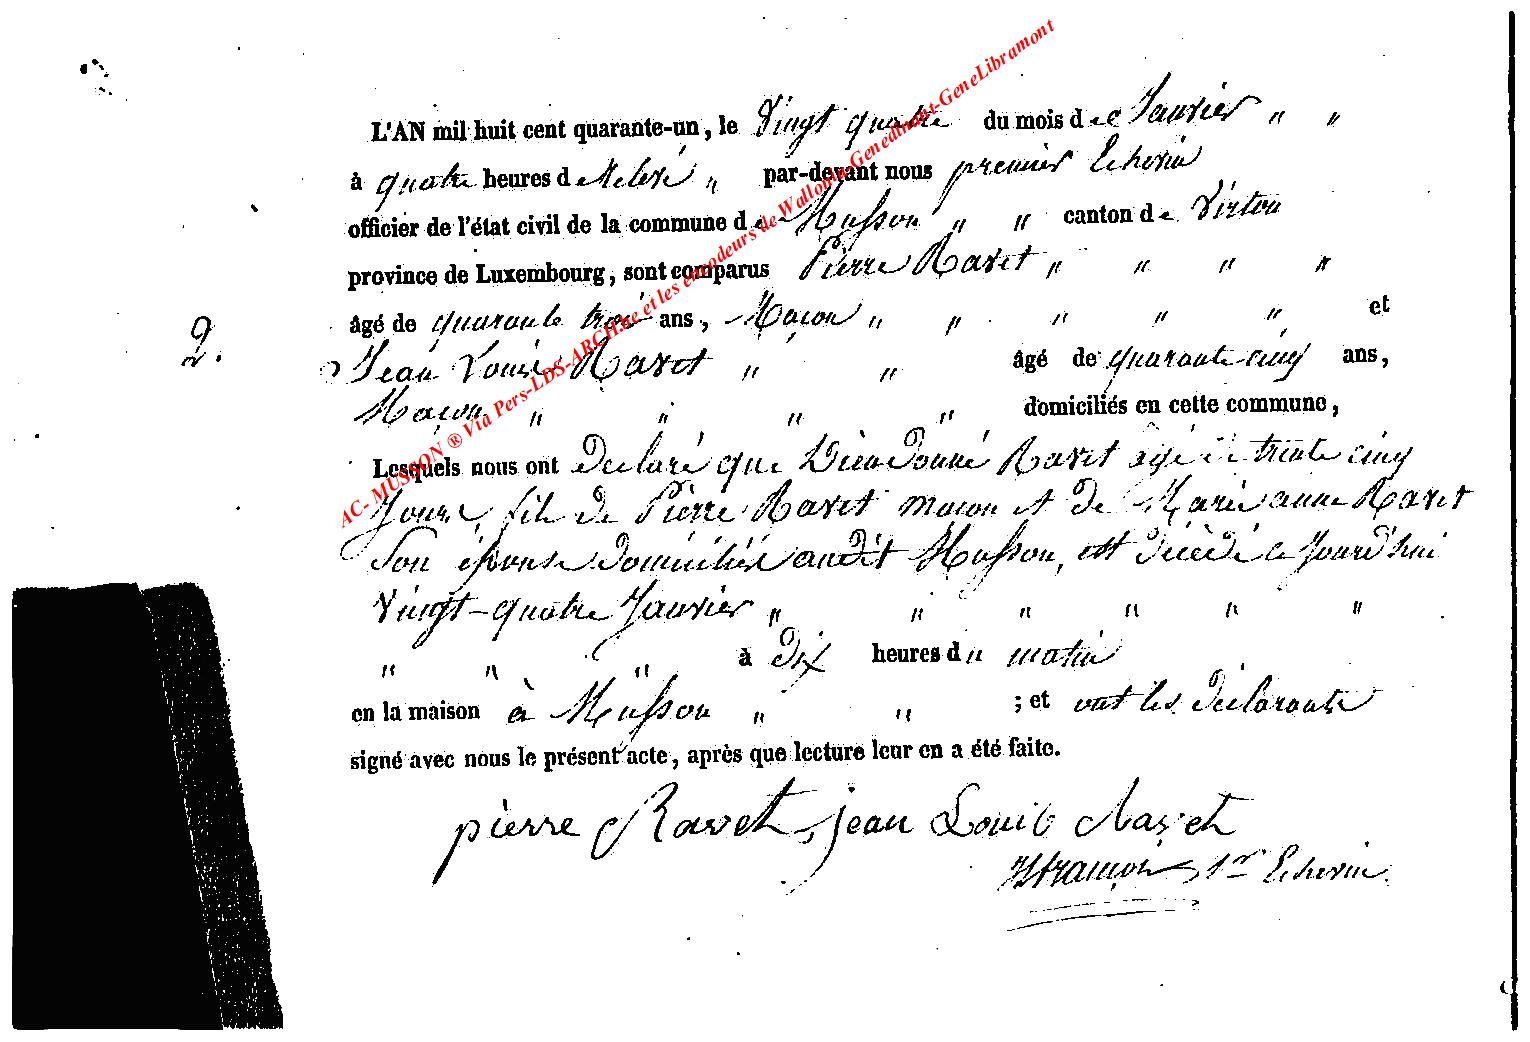 L'AN mil huit cent quarante-un, le Vingt quatre du mois de Janvier " "
à quatre heures de relevé " par-devant nous premier Echevin
officier de l'état civil de la commune de Musson " " canton de Virton
province de Luxembourg, sont comparus Pierre Ravet " " " "
âgé de quarante trois ans, Maçon " " " " " et
2. Jean Louis Ravet " " âgé de quarante cinq ans,
Maçon " " " " domiciliés en cette commune,
Lesquels nous ont declaré que Dieudonné Ravet agé de trente cinq
Jours, fils de Pierre Ravet maçon et de Marie anne Ravet
Son épouse domiciliés audit Musson, est décédé ce Jourd'hui
Vingt-quatre Janvier " " " " " "
" " " à Dix heures du matin
en la maison à Musson " " ; et ont les déclarants
signé avec nous le présent acte, après que lecture leur en a été faite.
pierre Ravet jean Louis Ravet
1er Echevin
AC- MUSSON ® Via Pers-LDS-ARCH.be et les encodeurs de Wallonia-Genedinant-GeneLibramont